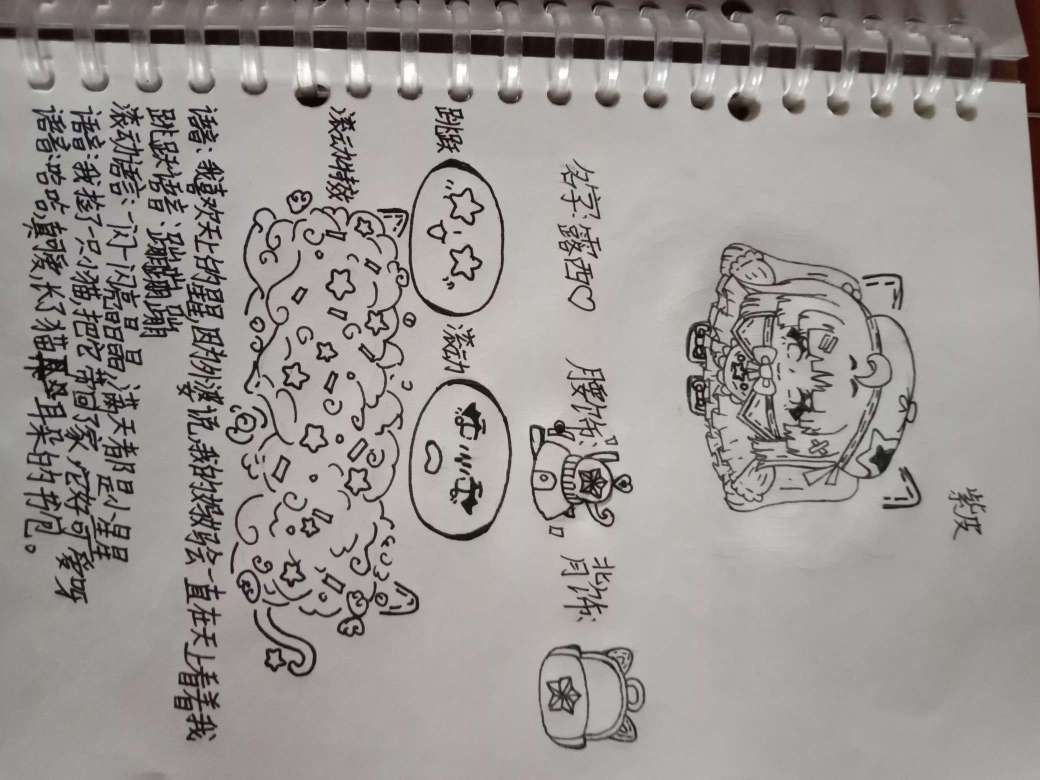 紫皮
名字:露西♡
腰饰:
背饰:
跳跃
滚动
滚动特效
语音:我喜欢天上的星星,因为外婆说,我的妈妈会一直在天上看着我
跳跃语音:蹦蹦蹦
滚动语音:一闪一闪亮晶晶满天都是小星星
语音:我捡了一只小猫把它带回家,它好可爱呀
语音:哈哈,真馒头了猫耳朵的抱。